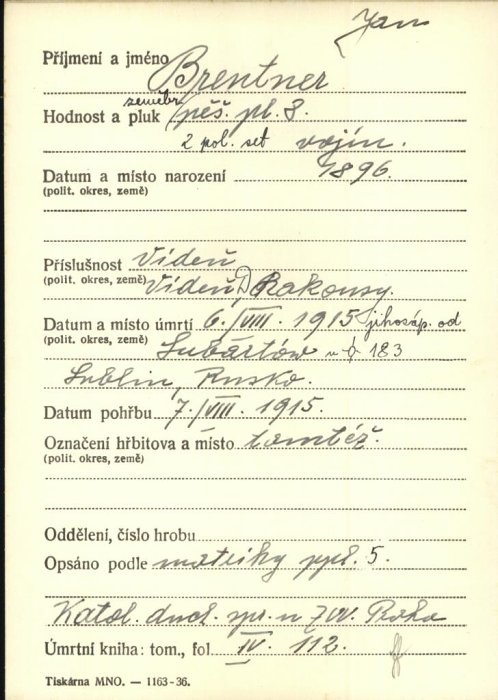 Jan
Příjmení a jméno Brentner
zeměbr.
Hodnost a pluk pěš. pl. 8.
2 pol. set vojín.
Datum a místo narození 1896.
(polit. okres, země)
Příslušnost Vídeň
(polit. okres, země) Vídeň, D. Rakousy.
Datum a místo úmrtí 6./VIII. 1915 jihozáp. od
(polit. okres, země) Lubartów 183
Lublin, Rusko.
Datum pohřbu 7./VIII. 1915.
Označení hřbitova a místo tamtéž.
(polit. okres, země)
Oddělení, číslo hrobu
Opsáno podle matriky ppl. 5.
Katol. duch. spr. n ZVV. Praha
Úmrtní kniha: tom., fol. IV. 112.
Tiskárna MNO. — 1163-36.